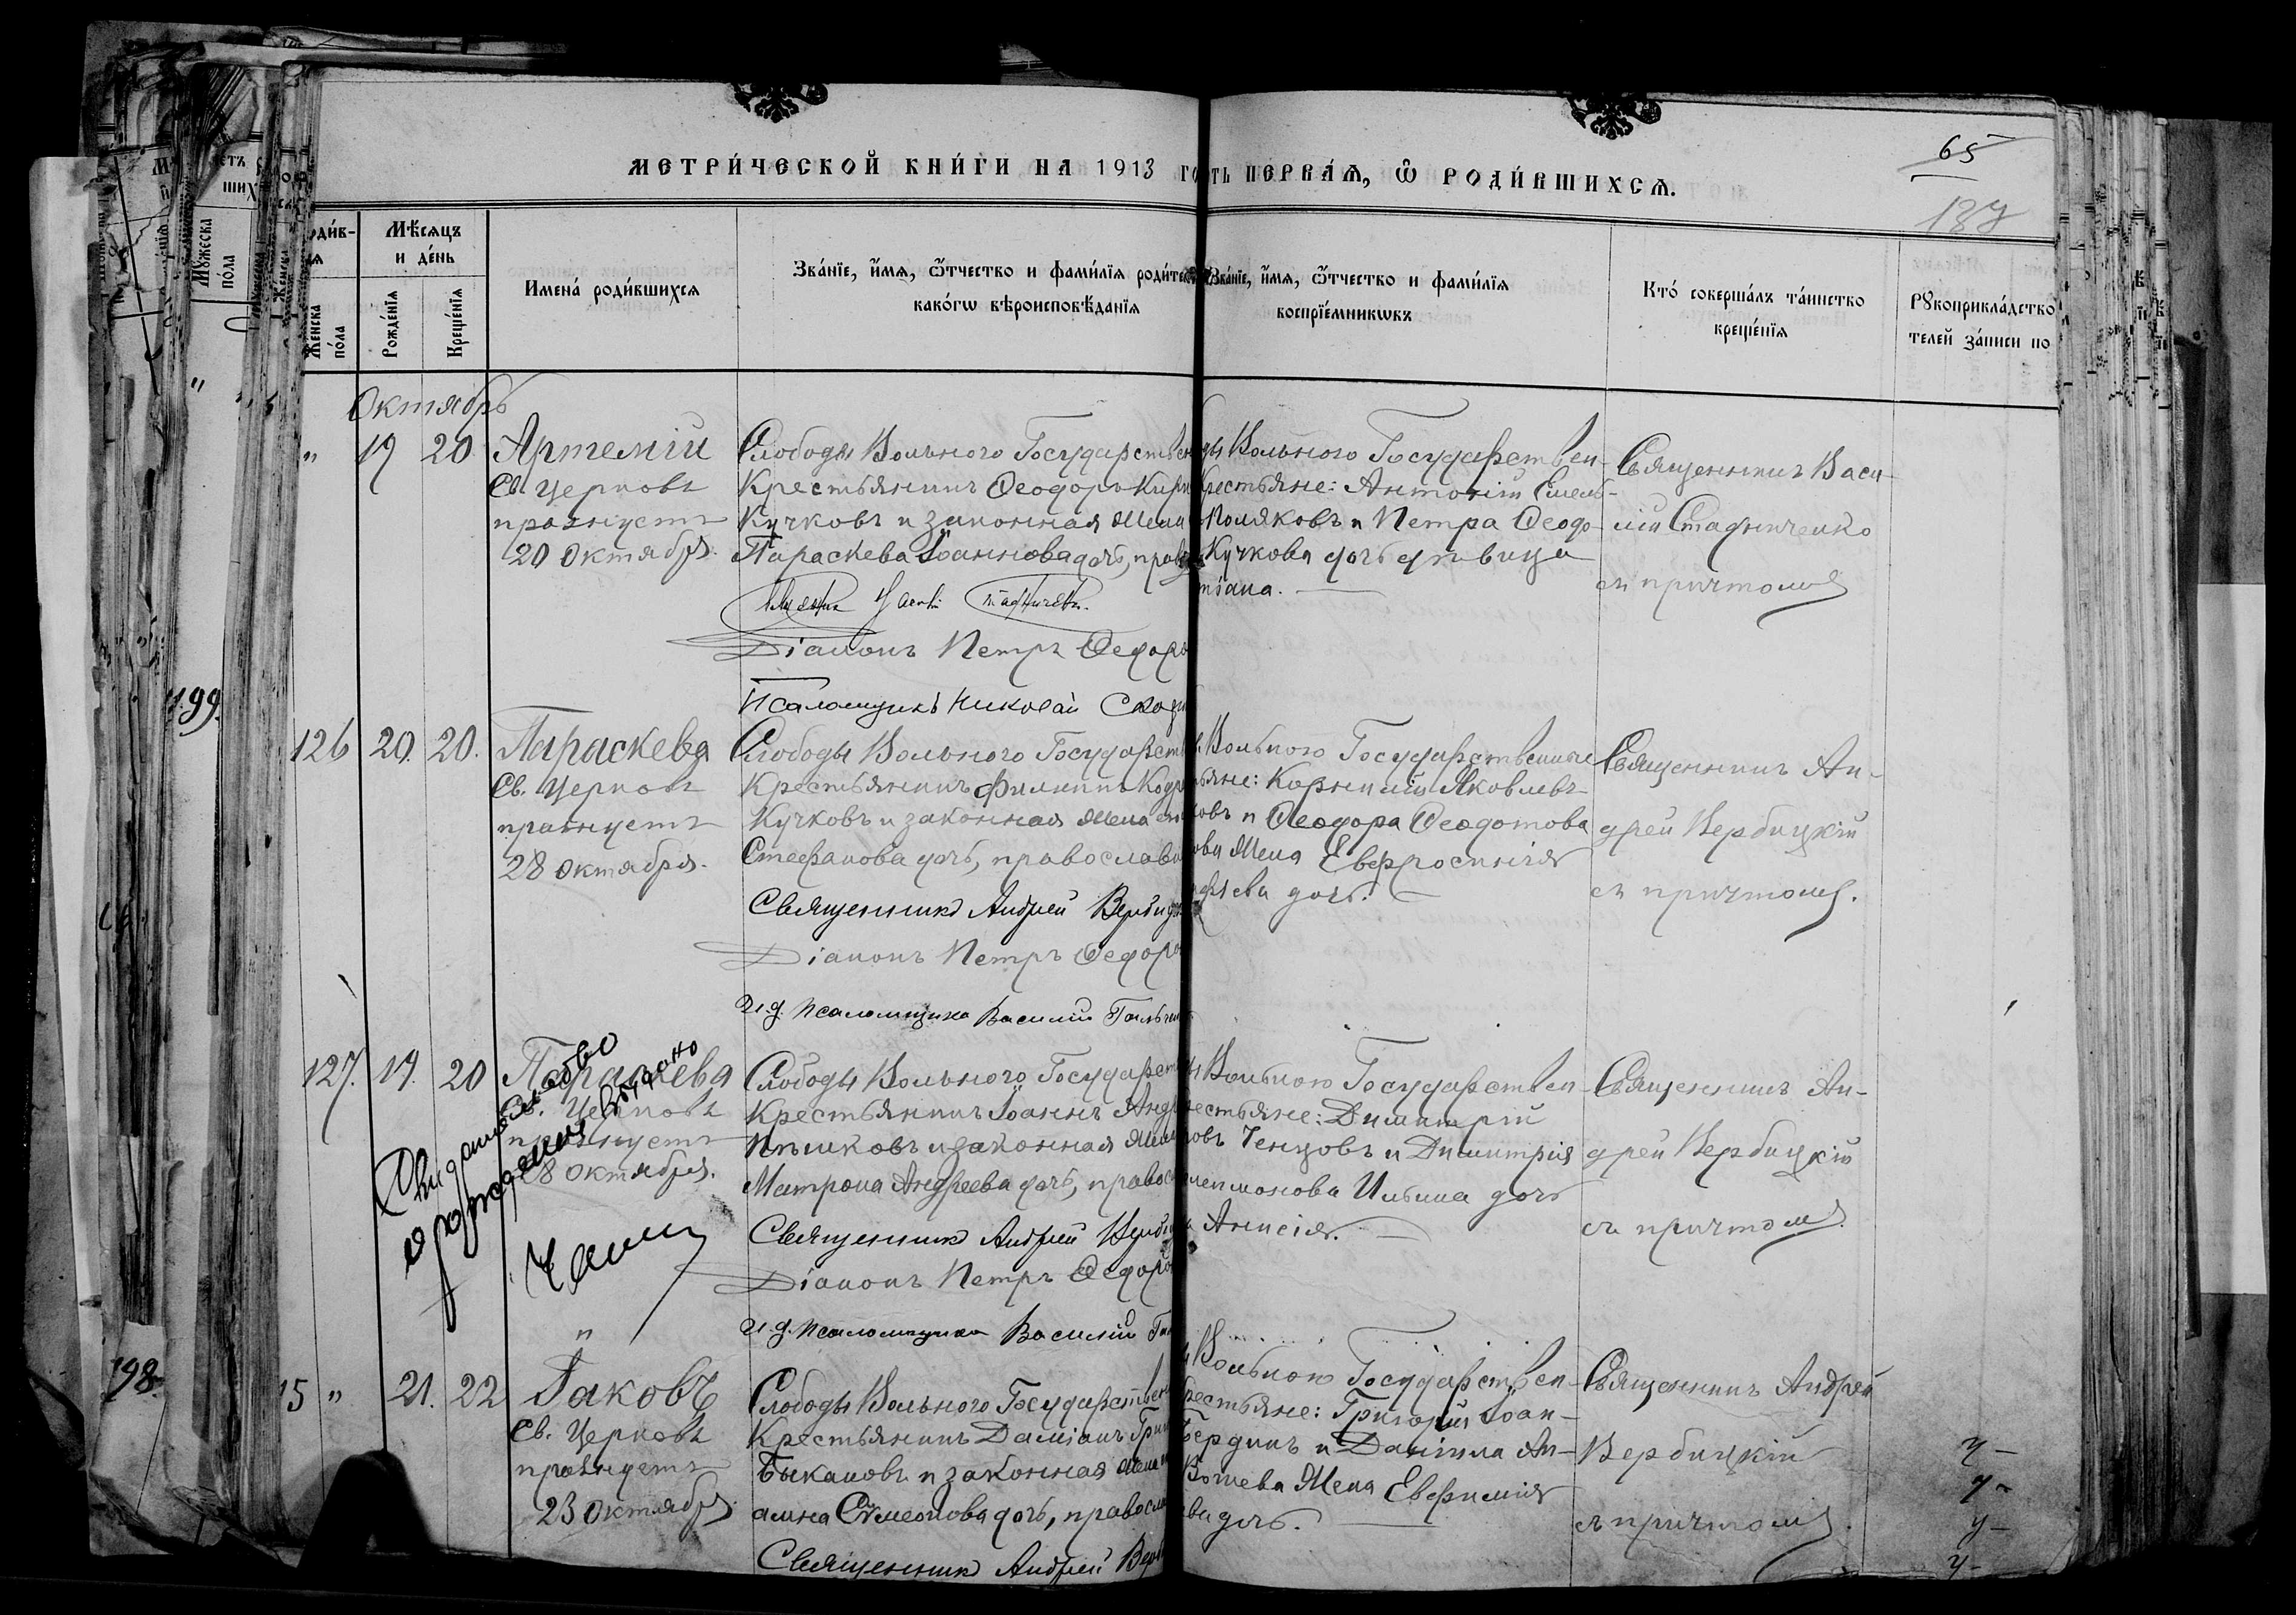 МЕТРИ́ЧЕСКОЙ КНИ́ГИ НА 1913 ГО
ТЬ ПЕРВА́Ѧ, Ѡ҆ РОДИ́ВШИХСѦ.
65
137
Мѣ́сѧцъ
и де́нь
Же́нска
по́ла
Рожде́нїѧ
Креще́нїѧ
Имена́ роди́вшихсѧ
Зва́нїе, и҆́мѧ, ѻ҆́тчество и фами́лїѧ роди́те
како́гѡ вѣроисповѣ́данїѧ
Зва́нїе, и҆́мѧ, ѻ҆́тчество и фами́лїѧ
воспрїе́мникѡвъ
Кто́ соверша́лъ та́инство
креще́нїѧ
Рꙋкоприкла́дство
телей за́писи по
Октябрь
" 19 20 Артемій
Св. Церковь
празнуетъ
20 Октября.
Слободы Вольного Государствен
Крестьянинъ Ѳеодоръ Кири
Кучковъ и законная жена
Параскева Іоаннова дочь, прав
Діаконъ Петръ Ѳедоро
Псаломщикъ Николай
ды Вольного Государствен-
крестьяне: Антоній Емель-
Поляковъ и Петра Ѳеодо-
Кучкова дочь дѣвица
тіана.
Священникъ Васи-
лій Стадниченко
съ причтомъ
199.
126 20. 20. Параскева
Св. Церковь
празнуетъ
28 Октября.
Слободы Вольного Государст
Крестьянинъ Филиппъ
Кучковъ и законная жена
Стефанова дочь, православ
Священникъ Андрей Вербиц
Діаконъ Петръ Ѳедоро
И.д. псаломщика Василій
Вольного Государственные
ьяне: Корнилій Яковлевъ
ковъ и Ѳеодора Ѳеодотова
ова жена Евфросинія
фьева дочь.
Священникъ Ан-
дрей Вербицкій
съ причтомъ.
127. 19. 20 Параскева
Св. Церковь
празнуетъ
28 Октября.
Свидетельство
о рождении выдано
Слободы Вольного Государст
Крестьянинъ Іоаннъ Андр
Пѣшковъ и законная жена
Матрона Андреева дочь, правос
Священникъ Андрей Верби
Діаконъ Петръ Ѳедоро
И.д. псаломщика Василій
ы Вольного Государствен-
рестьяне: Димитрій
ровъ Ченцовъ и Димитрія
Ильина дочь
Анисія.
Священникъ Ан-
дрей Вербицкій
съ причтомъ.
198.
15 " 21. 22 Іаковъ
Св. Церковь
празнуетъ
23 Октября.
Слободы Вольного Государствен
Крестьянинъ Даміанъ Григ
Быкановъ и законная жена
Симеонова дочь, правосла
Священникъ Андрей Верб
Вольного Государствен-
рестьяне: Григорій Іоан-
Бердинъ и Даніила Ан-
жена Евфимія
ева дочь.
Священникъ Андрей
Вербицкій
съ причтомъ.